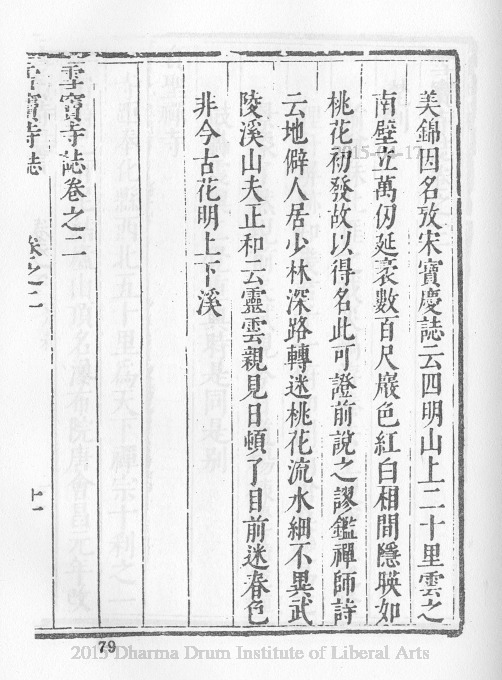 美錦因名攷宋寶慶誌云四明山上二十里雲之
南壁立萬仞延袤數百尺巖色紅白相間隱映如
桃花初發故以得名此可證前說之謬鑑禪師詩
云地僻人居少林深路轉迷桃花流水細不異武
陵溪山夫正和云靈雲親見日頓了目前迷春色
非今古花明上下溪
雪竇寺誌卷之二
雪竇寺誌 卷之二
79
2015 Dharma Drum Institute of Liberal Arts